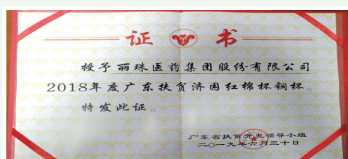 证 书
授予丽珠医药集团股份有限公司
2018年度广东扶贫济困红棉杯铜杯。
特发此证。
广东省扶贫开发领导小组
二〇一九年六月三十日